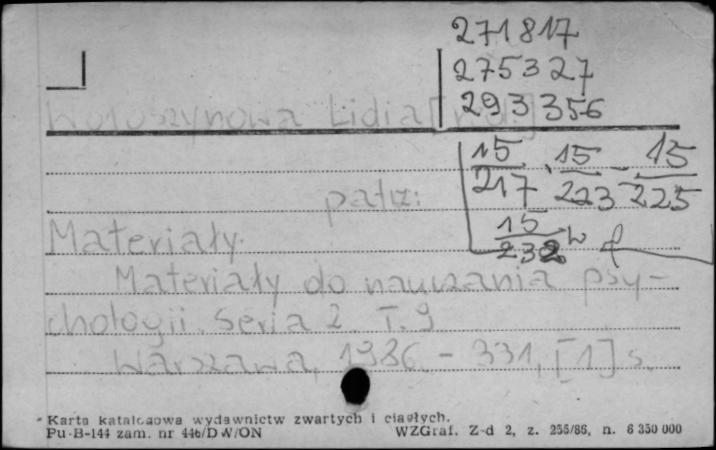 271817
275327
293356
Wołoszynowa Lidia [red.]
15 15 15
217 223 225
patrz:
15
232
Materiały.
Materiały do nauczania psy-
chologii. Seria 2. T. 9
Warszawa, 1986. - 331, [1] s.
Karta katalogowa wydawnictw zwartych i ciągłych.
Pu-B-144 zam. nr 446/DW/ON WZGraf. Z-d 2, z. 256/86, n. 6 350 000